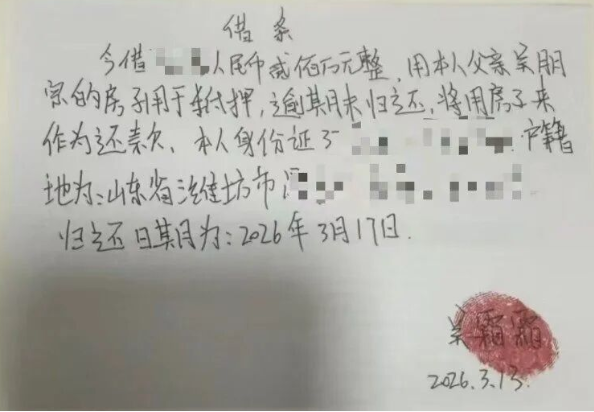 借条
今借 人民币贰佰万元整,用本人父亲吴朋
家的房子用于抵押,逾期未归还,将用房子来
作为还款、本人身份证3 户籍
地为:山东省潍坊市
归还日期为:2026年3月17日.
吴霜霜
2026.3.13.